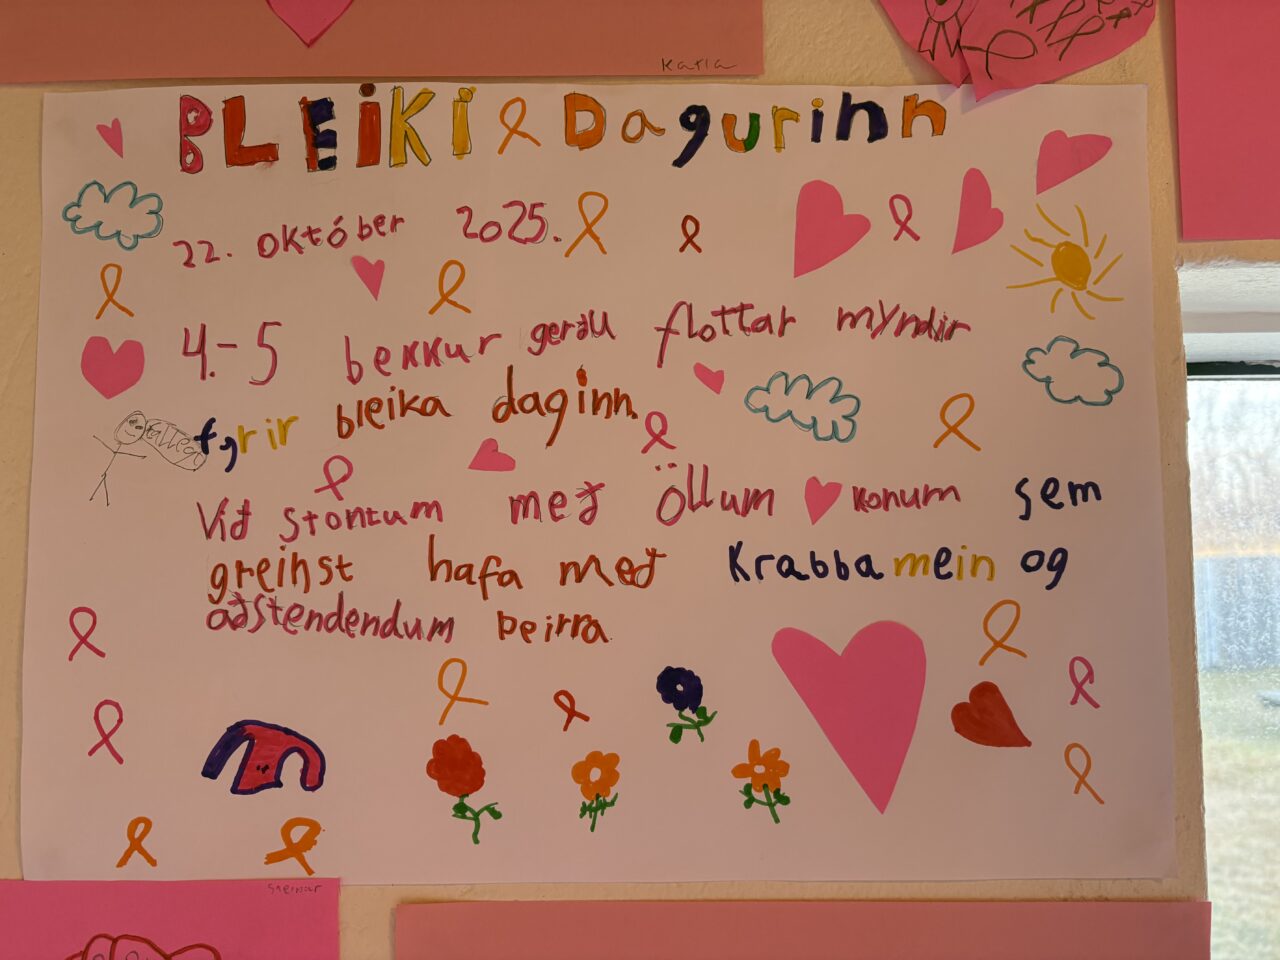 Karla
BLEIKI Dagurinn
22. október 2025.
4.-5 bekkur gerðu flottar myndir
fyrir bleika daginn.
fallegt
Við stöntum með öllum konum sem
greinst hafa með krabbamein og
aðstendendum þeirra
Steinar